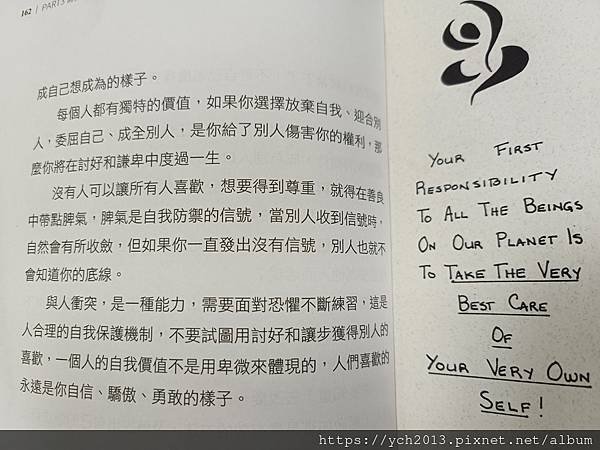 162 | PART 3
成自己想成為的樣子。
每個人都有獨特的價值，如果你選擇放棄自我、迎合別
人，委屈自己、成全別人，是你給了別人傷害你的權利，那
麼你將在討好和謙卑中度過一生。
沒有人可以讓所有人喜歡，想要得到尊重，就得在善良
中帶點脾氣，脾氣是自我防禦的信號，當別人收到信號時，
自然會有所收斂，但如果你一直發出沒有信號，別人也就不
會知道你的底線。
與人衝突，是一種能力，需要面對恐懼不斷練習，這是
人合理的自我保護機制，不要試圖用討好和讓步獲得別人的
喜歡，一個人的自我價值不是用卑微來體現的，人們喜歡的
永遠是你自信、驕傲、勇敢的樣子。
YOUR FIRST
RESPONSIBILITY
TO ALL THE BEINGS
ON OUR PLANET IS
TO TAKE THE VERY
BEST CARE
OF
YOUR VERY OWN
SELF!
https://ych2013.pixnet.net/album